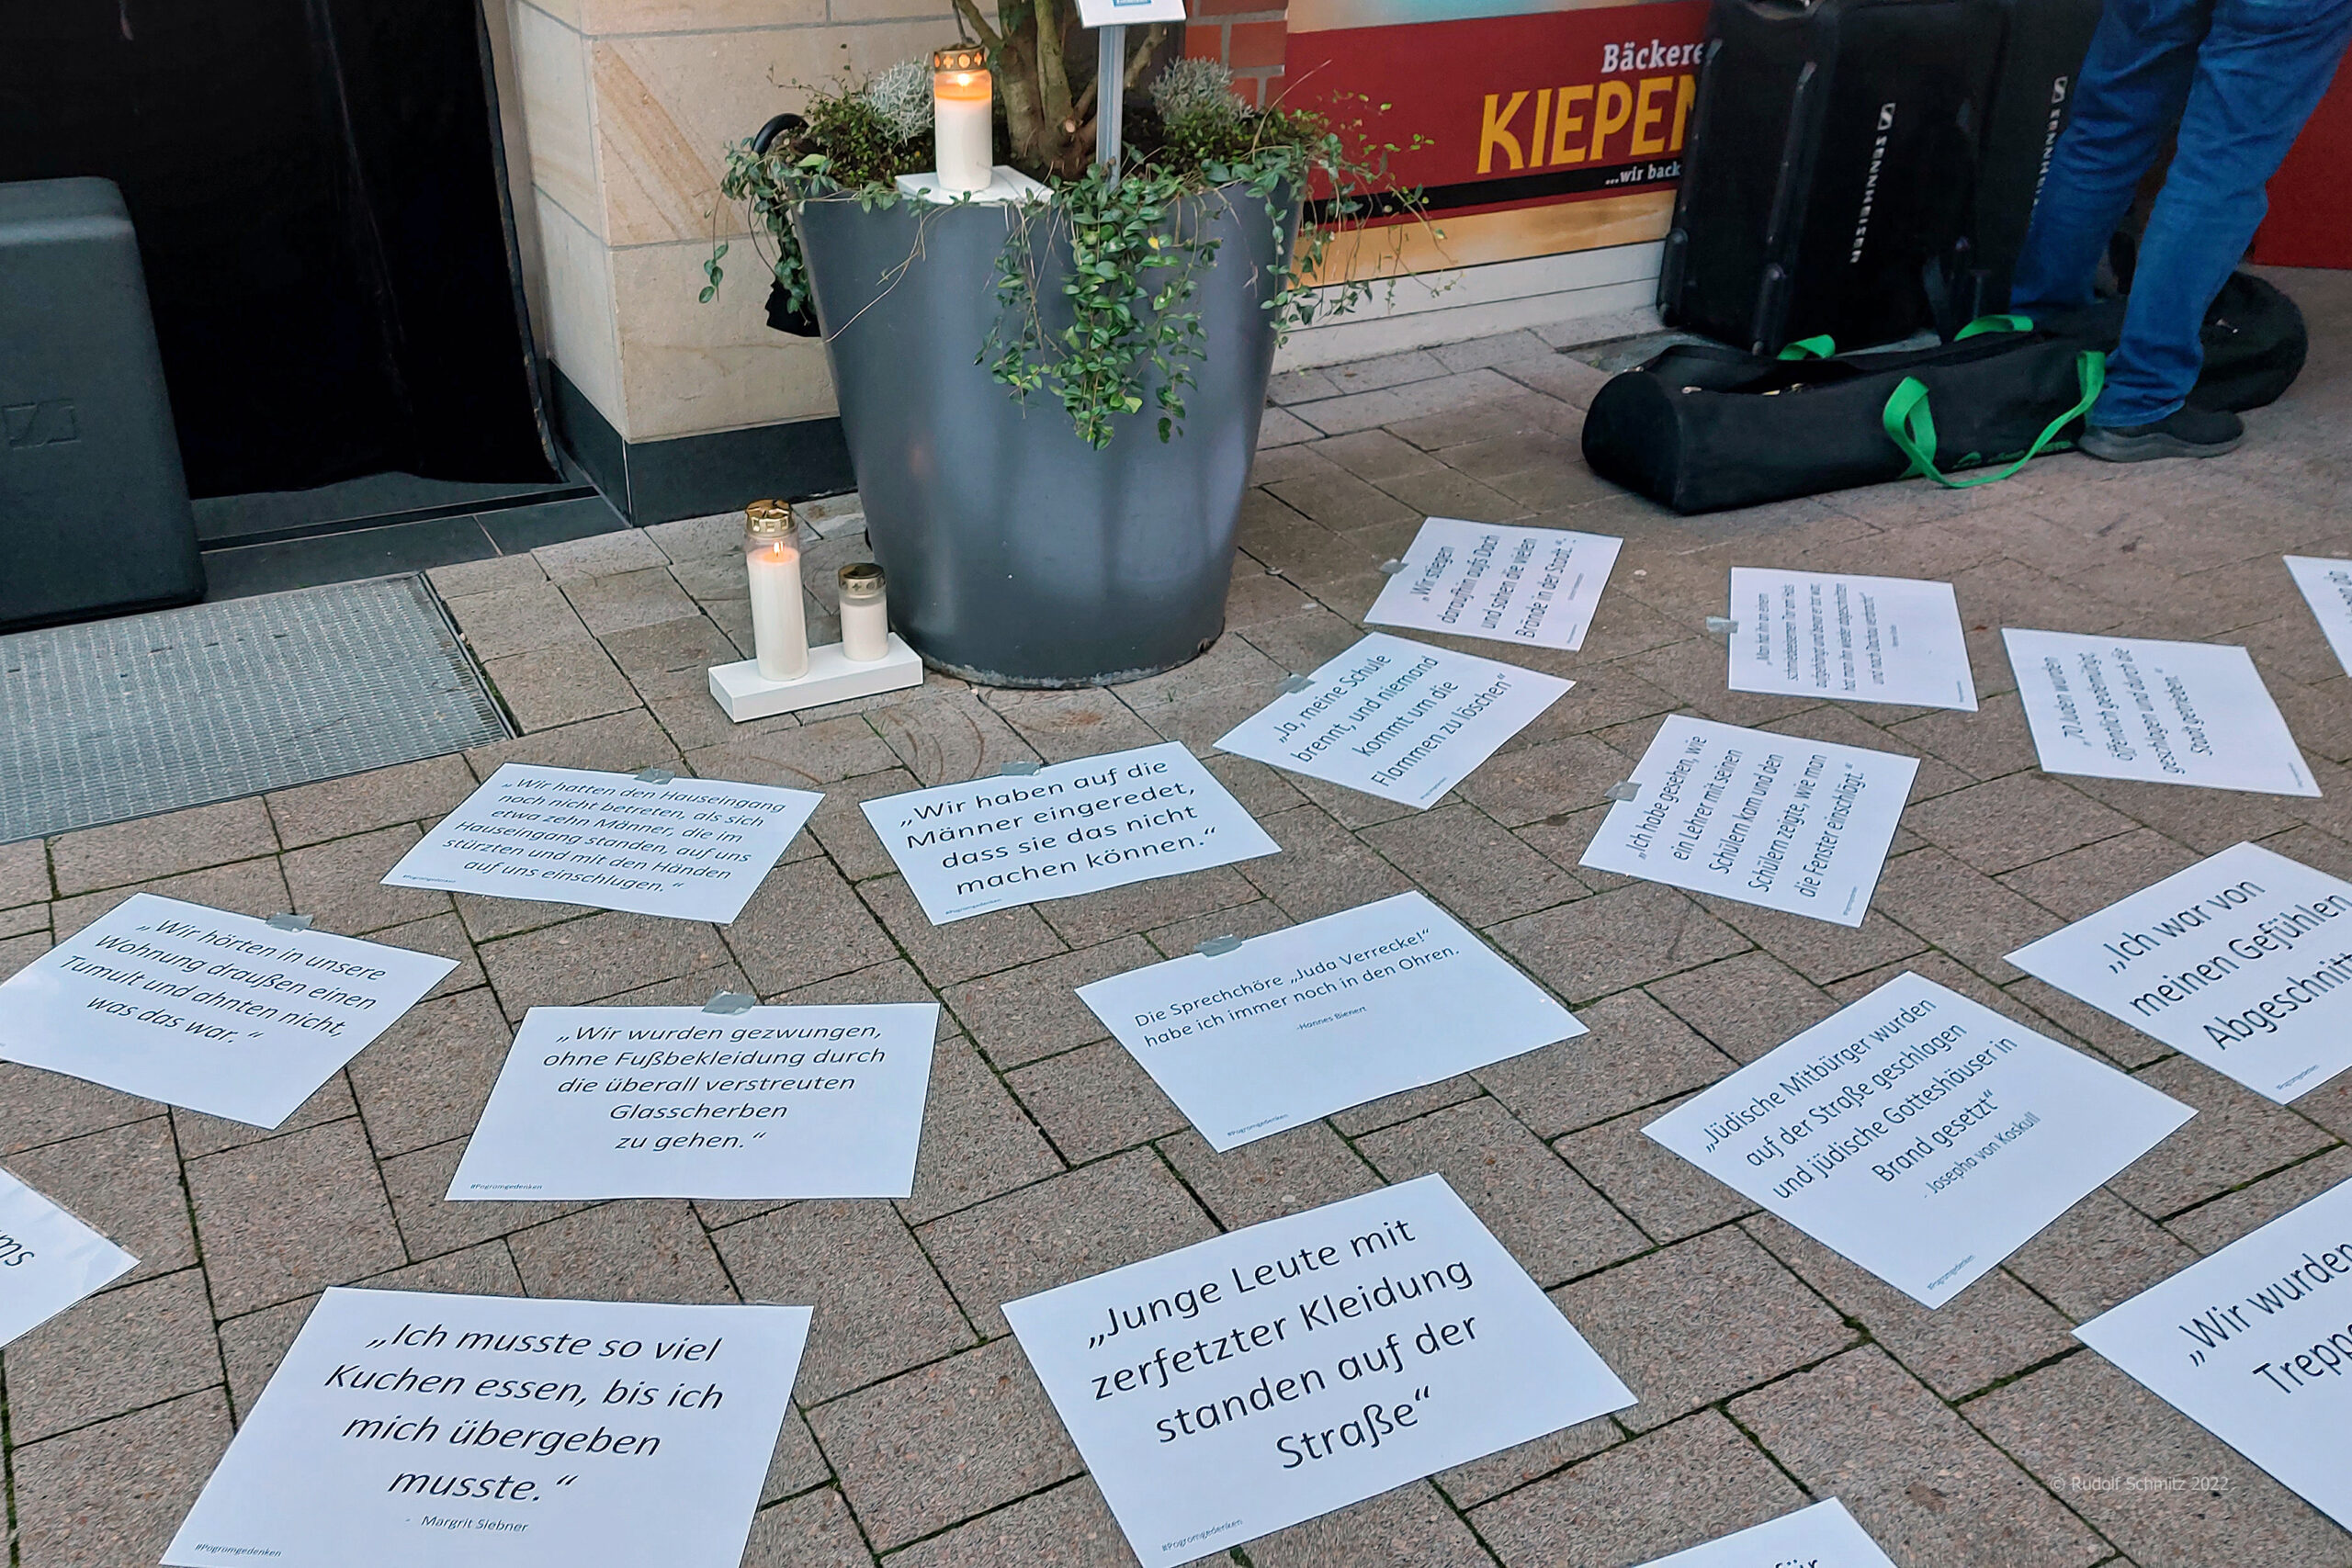 Bäckere
KIEPEN
...wir back
SENNHEISER
„Wir stiegen
daraufhin aufs Dach
und sahen die vielen
Brände in der Stadt.“
„Ja, meine Schule
brennt, und niemand
kommt um die
Flammen zu löschen“
„70 Juden wurden
öffentlich gedemütigt,
geschlagen und durch die
Stadt getrieben“
„Ich habe gesehen, wie
ein Lehrer mit seinen
Schülern kam und den
Schülern zeigte, wie man
die Fenster einschlägt.“
„Wir hatten den Hauseingang
noch nicht betreten, als sich
etwa zehn Männer, die im
Hauseingang standen, auf uns
stürzten und mit den Händen
auf uns einschlugen.“
#Pogromgedenken
„Wir haben auf die
Männer eingeredet,
dass sie das nicht
machen können.“
#Pogromgedenken
„Wir hörten in unsere
Wohnung draußen einen
Tumult und ahnten nicht,
was das war.“
„Wir wurden gezwungen,
ohne Fußbekleidung durch
die überall verstreuten
Glasscherben
zu gehen.“
#Pogromgedenken
Die Sprechchöre „Juda Verrecke!“
habe ich immer noch in den Ohren.
-Hannes Bienert
#Pogromgedenken
„Ich war von
meinen Gefühlen
Abgeschnitt
#Pogromgedenken
„Jüdische Mitbürger wurden
auf der Straße geschlagen
und jüdische Gotteshäuser in
Brand gesetzt“
- Josepha van Koskull
#Pogromgedenken
„Wir wurden
Trepp
ms
„Ich musste so viel
Kuchen essen, bis ich
mich übergeben
musste.“
- Margrit Siebner
#Pogromgedenken
„Junge Leute mit
zerfetzter Kleidung
standen auf der
Straße“
#Pogromgedenken
für
© Rudolf Schmitz 2022